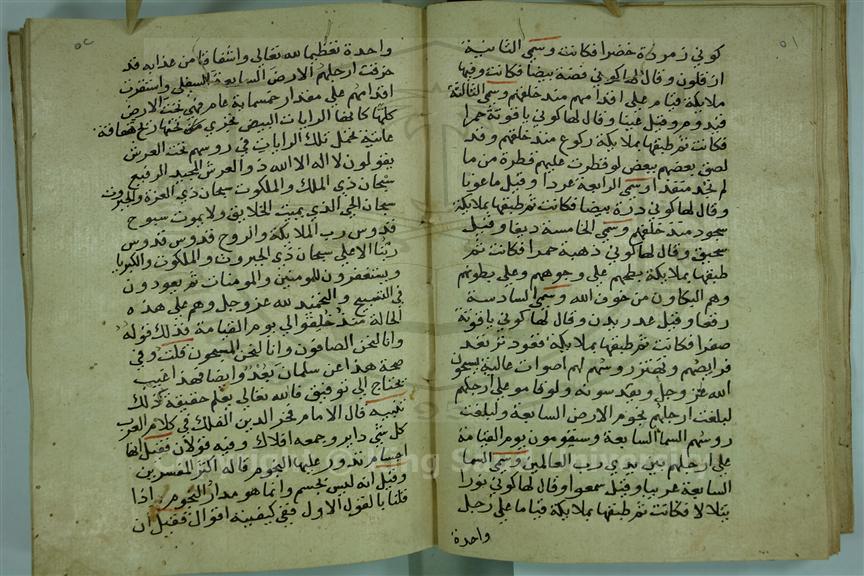 ٥١
كوني زمردة خضرا فكانت وسمى الثانية
ارقلون وقال لها كوني فضة بيضا فكانت وفيها
ملايكة قيام على اقدامهم منذ خلقهم وسمى الثالثة
قيدوم وقيل عينا وقال لها كوني ياقوتة حمرا
فكانت ثم طبقها بملايكة ركوع منذ خلقهم وقد
لصق بعضهم ببعض لو قطرت عليهم قطرة من ما
لم تجد منفذا وسمى الرابعة عردا وقيل ماعونا
وقال لها كوني درة بيضا فكانت ثم طبقها بملايكة
سجود منذ خلقهم وسمى الخامسة ديقا وقيل
سحيق وقال لها كوني ذهبة حمرا فكانت ثم
طبقها بملايكة بطحهم على وجوههم وعلى بطونهم
وهم البكاون من خوف الله وسمى السادسة
رفعا وقيل عدريدن وقال لها كوني ياقوتة
صفرا فكانت ثم طبقها بملايكة قعود ترعد
فرايصهم وتهتز روسهم لهم اصوات عالية يسبحون
الله عز وجل ويقدسونه ولو قاموا على ارجلهم
لبلغت ارجلهم تخوم الارض السابعة ولبلغت
روسهم السما السابعة وسيقومون يوم القيامة
على ارجلهم بين يدي رب العالمين وسمى السما
السابعة عريبا وقيل سمعوا وقال لها كوني نورا
يتلالا فكانت ثم طبقها بملايكة قياما على رجل
واحدة
٥٢
واحدة تعظيما لله تعالى واشفاقا من عذابه قد
خرقت ارجلهم الارض السابعة السفلى واستقرت
اقدامهم على مقدار خمسماية عام فهي تحت الارض
كلها كانها الرايات البيض تجري تحتها ريح هفافة
عاتية تحمل تلك الرايات في روسهم تحت العرش
يقولون لا اله الا الله ذو العرش المجيد الرفيع
سبحان ذي الملك والملكوت سبحان ذي العزة والجبروت
سبحان الحي الذي يميت الخلايق ولا يموت سبوح
قدوس رب الملايكة والروح قدوس قدوس
ربنا الاعلى سبحان ذي الجبروت والملكوت والكبريا
ويستغفرون للمومنين والمومنات ثم يعودون
في التسبيح والتحميد لله عز وجل وهم على هذه
الحالة منذ خلقوا الى يوم القيامة فذلك قوله
وانا لنحن الصافون وانا لنحن المسبحون قلت وفي
صحة هذا عن سلمان بعد وايضا فهذا غيب
يحتاج الى توقيف فالله تعالى يعلم حقيقة ذلك
تنبيه قال الامام فخر الدين الفلك في كلام العرب
كل شي داير وجمعه افلاك وفيه قولان فقيل انها
اجسام تدور عليها النجوم قاله اكثر المفسرين
وقيل انه ليس بجسم وانما هو مدار النجوم اذا
قلنا بالقول الاول ففي كيفيته اقوال فقيل ان